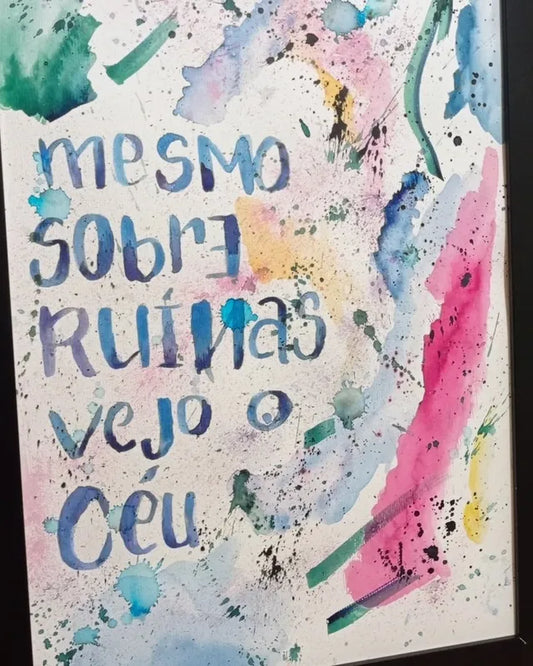 mesmo
sobre
RUÍNas
vejo o
céu